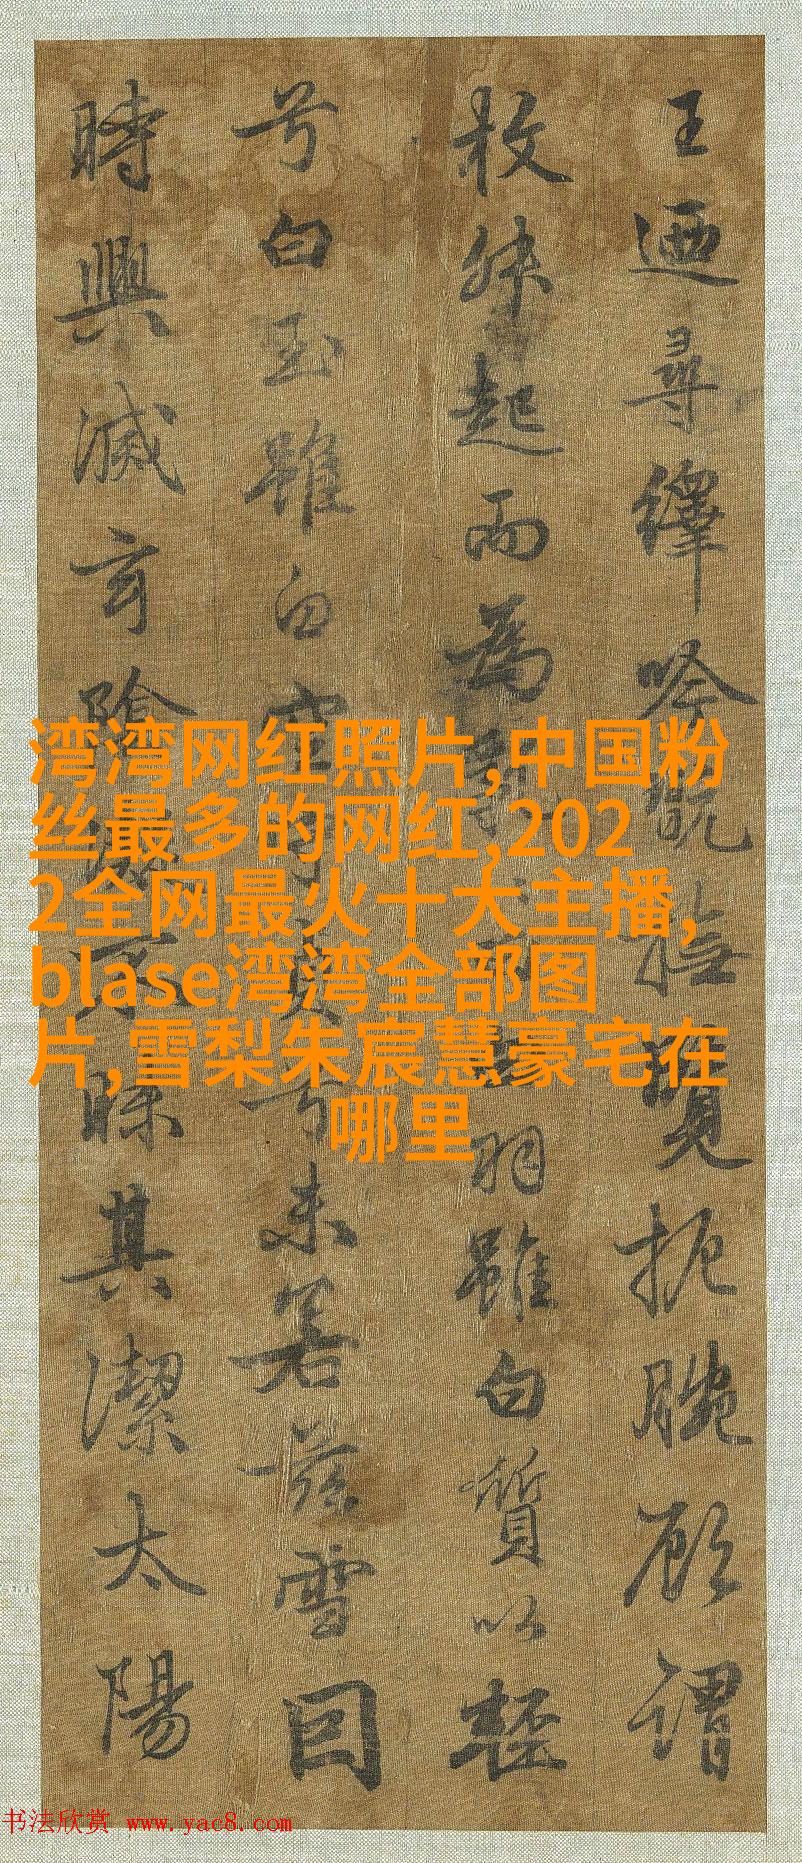 王迺尋繹吟翫撫覽扼腕顧謂
枚叔起而為亂羽雖白質以輕
兮白玉雖白空守貞兮未若茲雪因
時興滅玄陰凝不昧其潔太陽
湾湾网红照片,中国粉
丝最多的网红,202
2全网最火十大主播,
blase湾湾全部图
片,雪梨朱宸慧豪宅在
哪里
书法欣赏 www.yac8.com